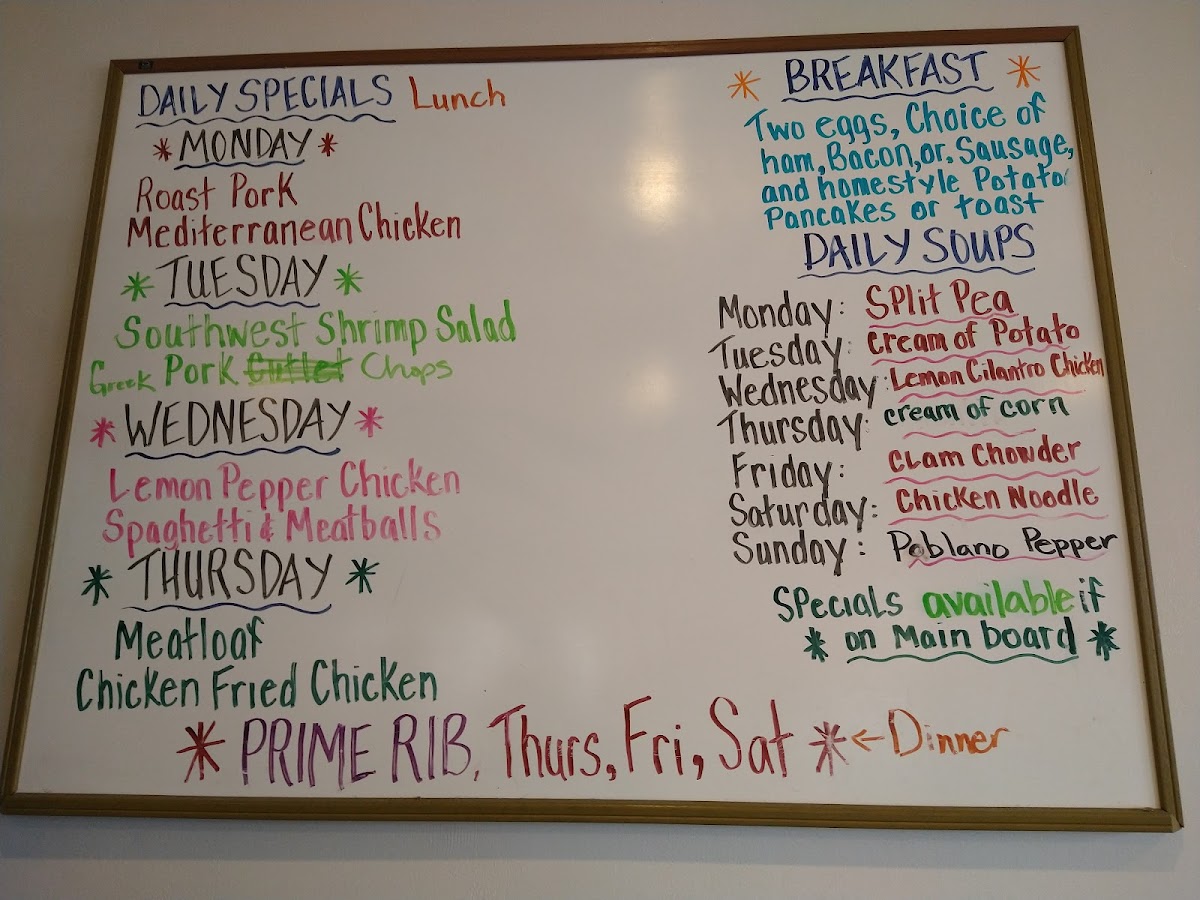 DAILY SPECIALS Lunch
* MONDAY *
Roast Pork
Mediterranean Chicken
* TUESDAY *
Southwest Shrimp Salad
Greek Pork Cutlet Chops
* WEDNESDAY *
Lemon Pepper Chicken
Spaghetti & Meatballs
* THURSDAY *
Meatloaf
Chicken Fried Chicken
* BREAKFAST *
Two eggs, Choice of
ham, Bacon, or. Sausage,
and homestyle Potato
Pancakes or toast
DAILY SOUPS
Monday: Split Pea
Tuesday: cream of Potato
Wednesday: Lemon Cilantro Chicken
Thursday: cream of corn
Friday: Clam Chowder
Saturday: Chicken Noodle
Sunday: Poblano Pepper
Specials available if
* on Main board *
* PRIME RIB, Thurs, Fri, Sat * ← Dinner